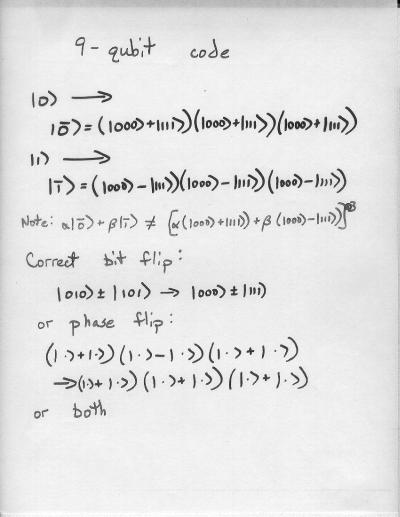 9-qubit code
|0⟩ →
|0̅⟩ = (|000⟩+|111⟩)(|000⟩+|111⟩)(|000⟩+|111⟩)
|1⟩ →
|1̅⟩ = (|000⟩-|111⟩)(|000⟩-|111⟩)(|000⟩-|111⟩)
Note: α|0̅⟩+β|1̅⟩ ≠ [α(|000⟩+|111⟩)+β(|000⟩-|111⟩)]^⊗3
Correct bit flip:
|010⟩ ± |101⟩ → |000⟩ ± |111⟩
or phase flip:
(|·⟩+|·⟩)(|·⟩-|·⟩)(|·⟩+|·⟩)
→(|·⟩+|·⟩)(|·⟩+|·⟩)(|·⟩+|·⟩)
or both